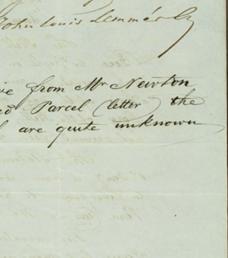 John Louis Lemmé
from Mr Newton
Parcel (letter) the
are quite unknown